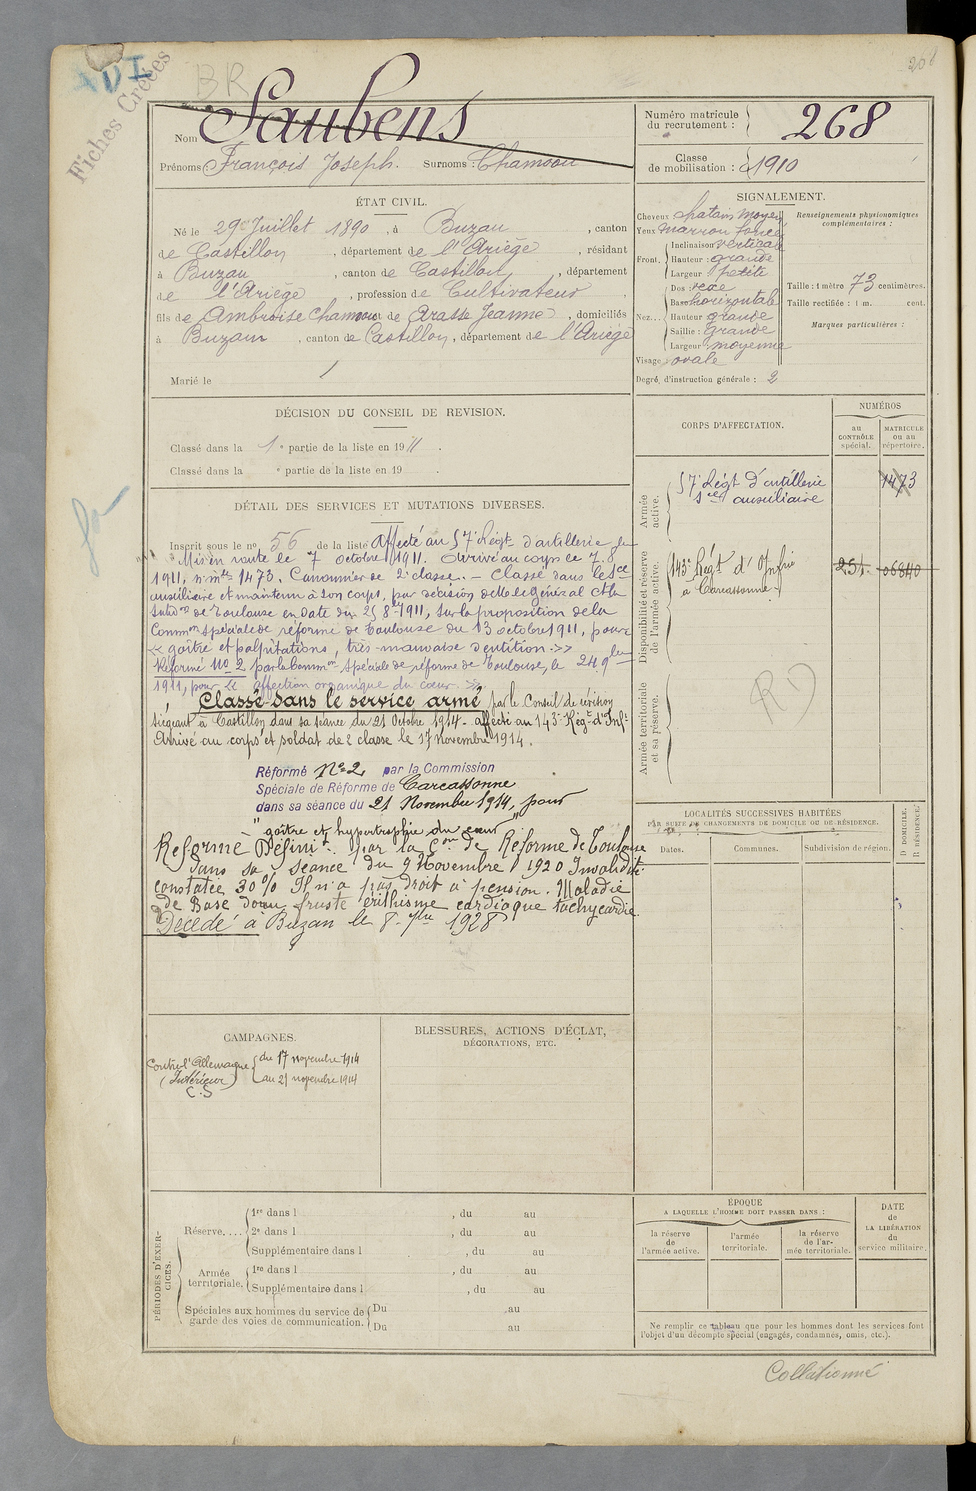 268
ADI
BR
Fiches Créées
Nom Saubens
Prénoms : François Joseph. Surnoms : Chamsou
Numéro matricule du recrutement : 268
Classe de mobilisation : 1910
ÉTAT CIVIL.
Né le 29 Juillet 1890, à Buzan, canton
de Castillon, département de l'Ariège, résidant
à Buzan, canton de Castillon, département
de l'Ariège, profession de Cultivateur
fils de Ambroise Chamsou et de Arasse Jeanne, domiciliés
à Buzan, canton de Castillon, département de l'Ariège
Marié le /
SIGNALEMENT.
Cheveux chatain moyen
Yeux marron foncé
Front. Inclinaison verticale
Hauteur : grande
Largeur petite
Nez... Dos : vexe
Base horizontale
Hauteur grande
Saillie : grande
Largeur moyenne
Visage : ovale
Degré d'instruction générale : 2
Renseignements physionomiques complémentaires :
Taille : 1 mètre 73 centimètres.
Taille rectifiée : 1 m. cent.
Marques particulières :
DÉCISION DU CONSEIL DE REVISION.
Classé dans la 1e partie de la liste en 1911.
Classé dans la e partie de la liste en 19 .
DÉTAIL DES SERVICES ET MUTATIONS DIVERSES.
Inscrit sous le no 56 de la liste Affecté au 57e Régt d'artillerie le
Mis en route le 7 octobre 1911. Arrivé au corps le 7. 8
1911, n° mle 1473. Canonnier de 2e classe. - Classé dans le Sce
auxiliaire et maintenu à son corps, par décision de M. le Général Ct la
Subdon de Toulouse en date du 25 8bre 1911, sur la proposition de la
Common spéciale de réforme de Toulouse du 13 octobre 1911, pour
« goître et palpitations, très mauvaise dentition. »
Réformé No 2 par la Common spéciale de réforme de Toulouse, le 24 9bre
1911, pour « affection organique du cœur. »
Classé dans le service armé par le Conseil de révision
siégeant à Castillon dans sa séance du 21 Octobre 1914. Affecté au 143e Régt d'Infie
Arrivé au corps et soldat de 2 classe le 17 Novembre 1914.
Réformé No 2 par la Commission
Spéciale de Réforme de Carcassonne
dans sa séance du 21 Novembre 1914, pour
" goître et hypertrophie du cœur "
Reformé Définit. par la Con de Réforme de Toulouse
dans sa séance du 9 Novembre 1920 Invalidité
constatée 30 % Il n'a pas droit à pension. Maladie
de Base dow fruste éréthisme cardiaque tachycardie.
Décédé à Buzan le 8 7bre 1928
CORPS D'AFFECTATION.
NUMÉROS
au CONTRÔLE spécial.
MATRICULE ou au répertoire.
Armée active.
57e Régt d'artillerie
Sce auxiliaire
1473
Disponibilité et réserve de l'armée active.
143e Régt d'Infie
à Carcassonne
251 06840
Armée territoriale et sa réserve.
RD
LOCALITÉS SUCCESSIVES HABITÉES
PAR SUITE DE CHANGEMENTS DE DOMICILE OU DE RÉSIDENCE.
Dates. Communes. Subdivision de région.
D DOMICILE. R RÉSIDENCE.
CAMPAGNES.
Contre l'Allemagne
(Intérieur)
C.S
du 17 novembre 1914
au 21 novembre 1914
BLESSURES, ACTIONS D'ÉCLAT,
DÉCORATIONS, ETC.
PÉRIODES D'EXERCICES.
Réserve.... 1re dans l , du au
2e dans l , du au
Supplémentaire dans l , du au
Armée territoriale. 1re dans l , du au
Supplémentaire dans l , du au
Spéciales aux hommes du service de garde des voies de communication. Du au
Du au
ÉPOQUE
A LAQUELLE L'HOMME DOIT PASSER DANS :
la réserve de l'armée active.
l'armée territoriale.
la réserve de l'armée territoriale.
DATE de LA LIBÉRATION du service militaire.
Ne remplir ce tableau que pour les hommes dont les services font
l'objet d'un décompte spécial (engagés, condamnés, omis, etc.).
Collationné